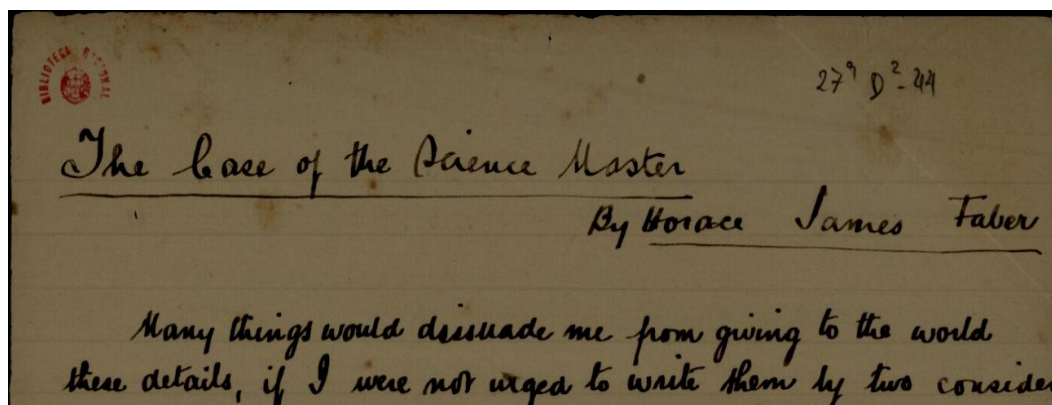 BIBLIOTECA NACIONAL
27⁹ D²-44
The Case of the Science Master
By Horace James Faber
Many things would dissuade me from giving to the world
these details, if I were not urged to write them by two consider